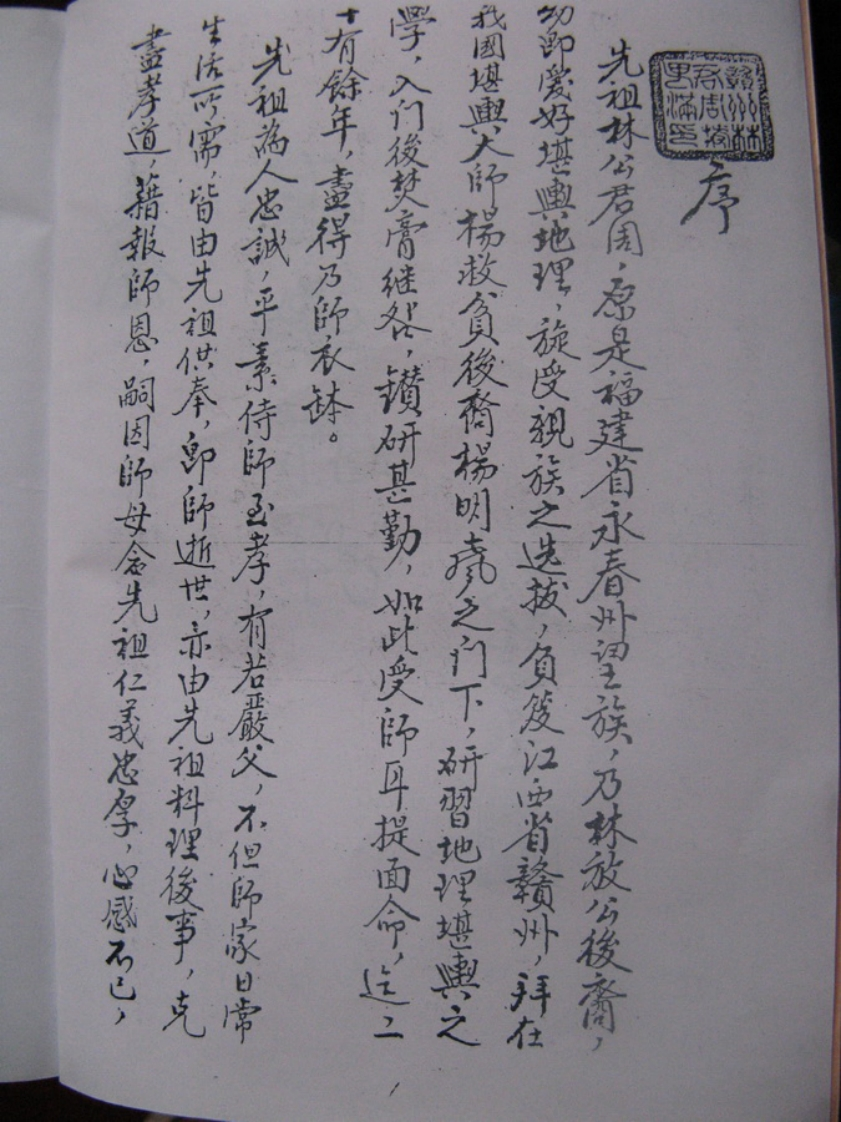 序
先祖林公君周，原是福建省永春州望族，乃林放公後裔，
幼即愛好堪輿地理，旋受親族之选拔，負笈江西省贛州，拜在
我國堪輿大師楊救貧後裔楊明之门下，研習地理堪輿之
學，入门後焚膏继晷，鑚研甚勤，如此受師耳提面命，迄二
十有餘年，盡得乃師衣缽。
先祖為人忠誠，平素侍師至孝，有若嚴父，不但師家日常
生活所需，皆由先祖供奉，即師逝世，亦由先祖料理後事，克
盡孝道，藉報師恩，嗣因師母念先祖仁義忠厚，心感不已，
1